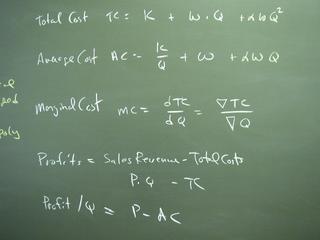 Total Cost TC = K + W.Q + αWQ²
Average Cost AC = K/Q + W + αWQ
Marginal Cost MC = dTC/dQ = ∇TC/∇Q
Profits = Sales Revenue - Total Costs
P.Q - TC
Profit/Q = P - AC